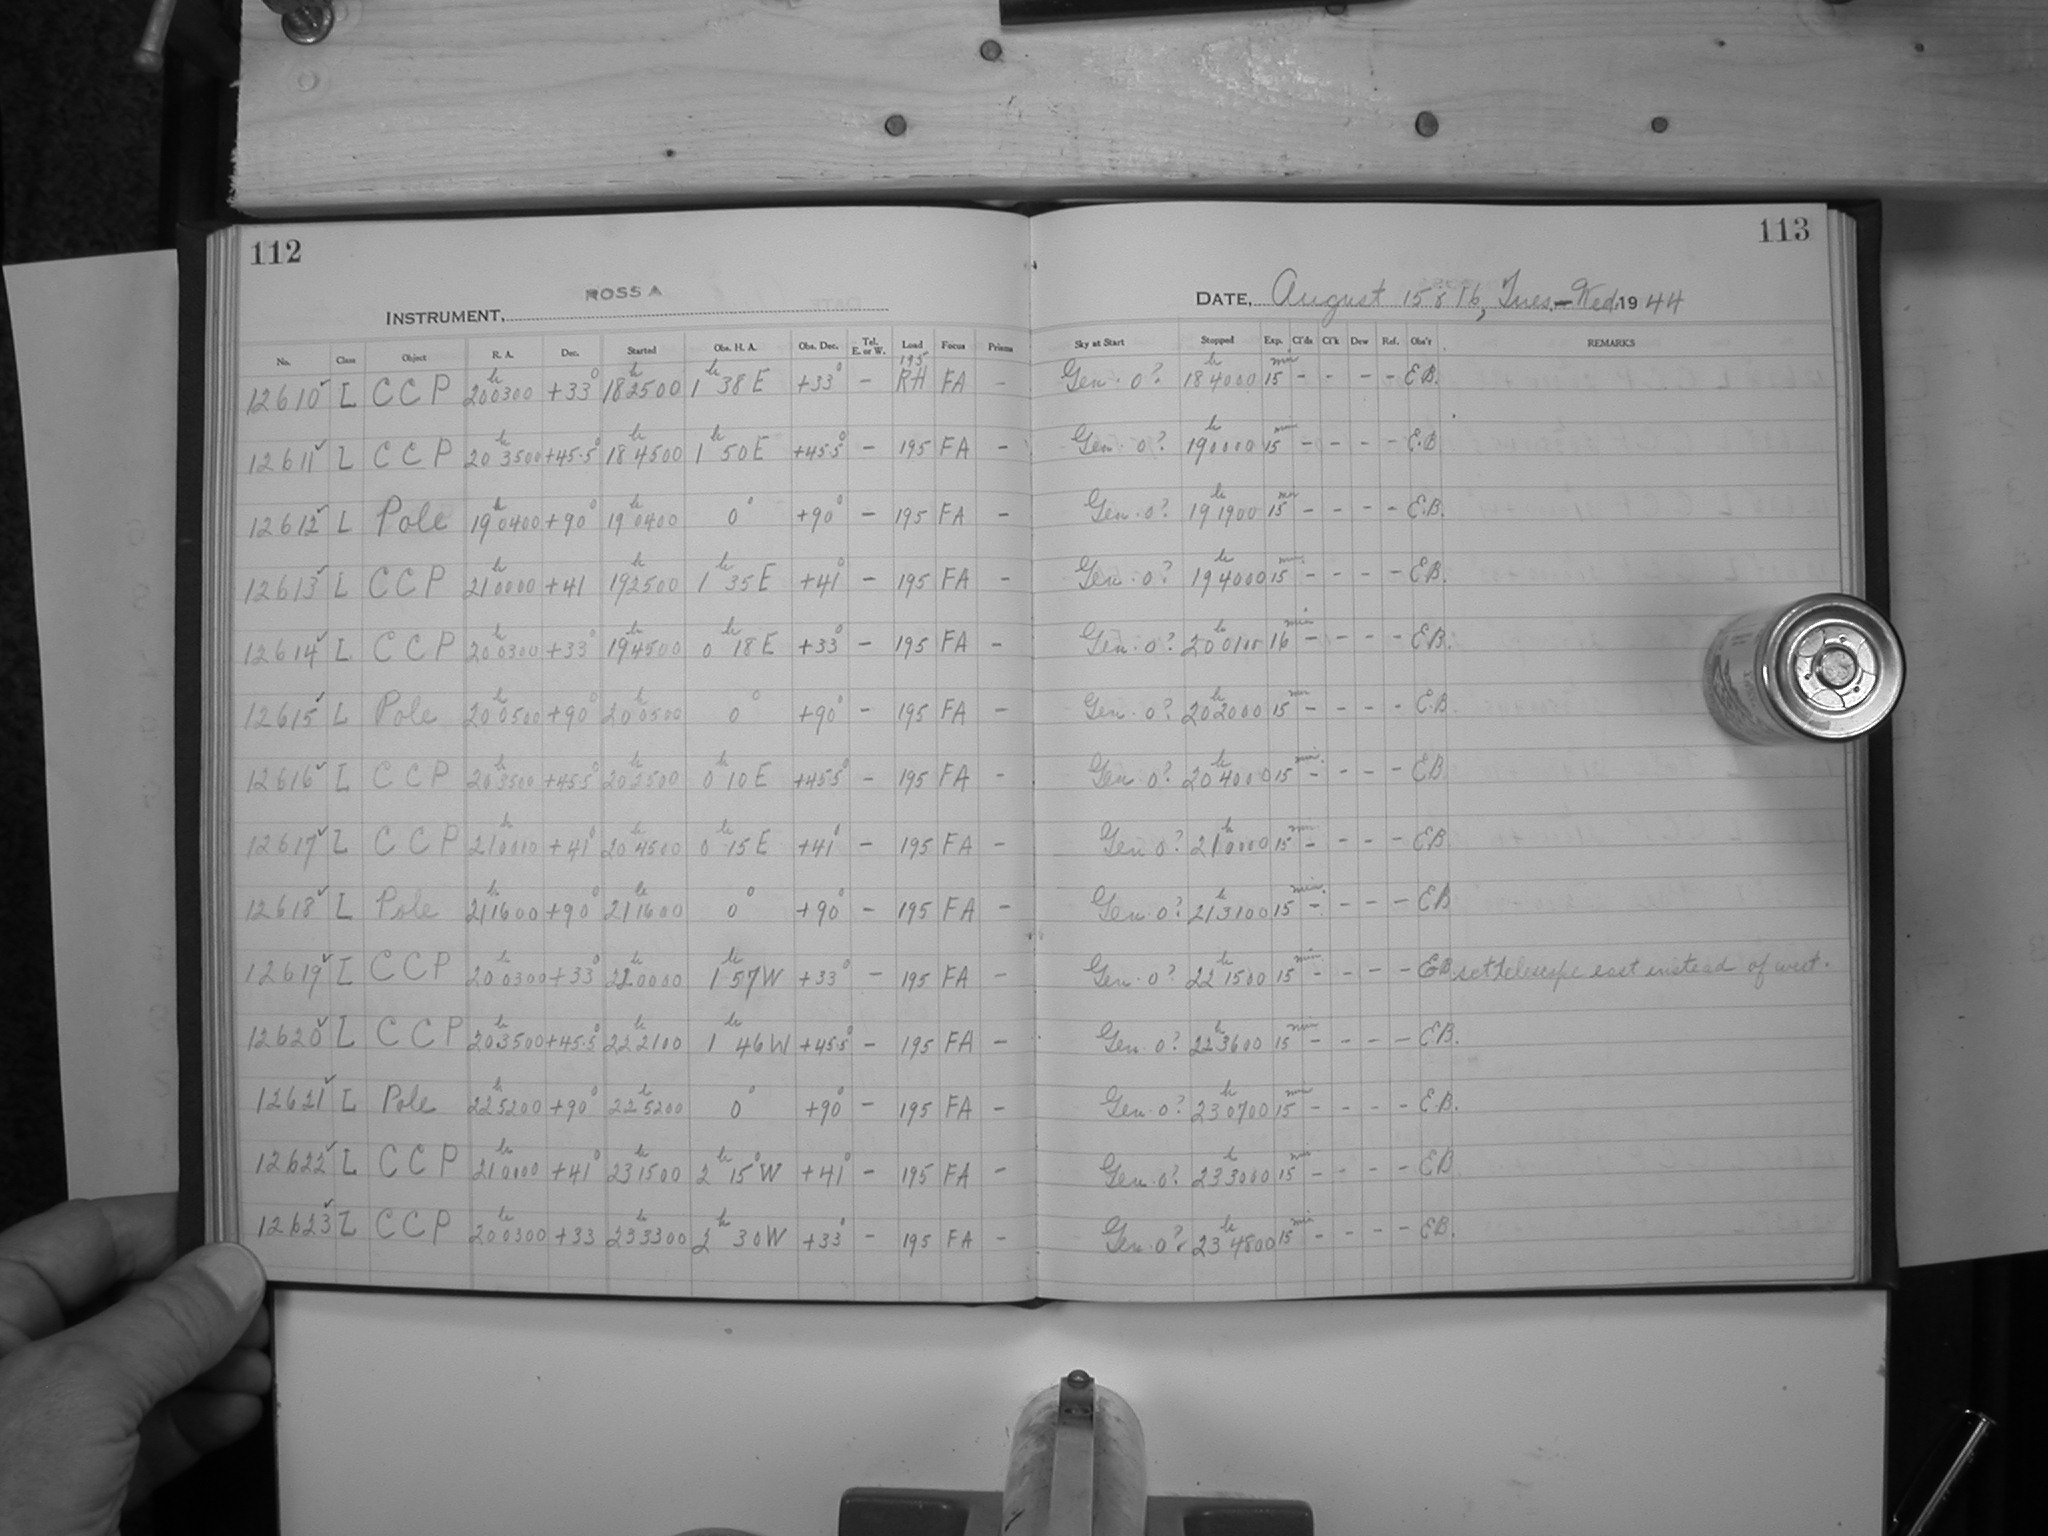 112
113
ROSS A
INSTRUMENT,
DATE, August 15 & 16, Tues.-Wed. 1944
No. Class Object R. A. Dec. Started Obs. H. A. Obs. Dec. Tel. E. or W. Load Focus Prisms Sky at Start Stopped Exp. Cl'ds Cl'k Dew Ref. Obs'r REMARKS
12610✓ L CCP 20h0300 +33° 18h2500 1h 38 E +33° - 195 RH FA - Gen. 0? 18h4000 15 min - - - - E.B.
12611✓ L CCP 20h3500 +45.5° 18h4500 1h 50 E +45.5° - 195 FA - Gen. 0? 19h0000 15 min - - - - E.B
12612✓ L Pole 19h0400 +90° 19h0400 0° +90° - 195 FA - Gen. 0? 19h1900 15 min - - - - E.B.
12613✓ L CCP 21h0000 +41 19h2500 1h 35 E +41° - 195 FA - Gen. 0? 19h4000 15 min - - - - E.B.
12614✓ L CCP 20h0300 +33° 19h4500 0h 18 E +33° - 195 FA - Gen. 0? 20h0100 16 min - - - - E.B.
12615✓ L Pole 20h0500 +90° 20h0500 0° +90° - 195 FA - Gen. 0? 20h2000 15 min - - - - E.B
12616✓ L CCP 20h3500 +45.5° 20h2500 0h 10 E +45.5° - 195 FA - Gen 0? 20h4000 15 min. - - - - E.B
12617✓ L CCP 21h0000 +41° 20h4500 0h 15 E +41° - 195 FA - Gen 0? 21h0000 15 min - - - - EB
12618✓ L Pole 21h1600 +90° 21h1600 0° +90° - 195 FA - Gen 0? 21h3100 15 min. - - - - EB
12619✓ L CCP 20h0300 +33° 22h0000 1h 57 W +33° - 195 FA - Gen. 0? 22h1500 15 min - - - - EB set telescope east instead of west.
12620✓ L CCP 20h3500 +45.5° 22h2100 1h 46 W +45.5° - 195 FA - Gen. 0? 22h3600 15 min - - - - E.B.
12621✓ L Pole 22h5200 +90° 22h5200 0° +90° - 195 FA - Gen. 0? 23h0700 15 min - - - - E.B.
12622✓ L CCP 21h0000 +41° 23h1500 2h 15° W +41° - 195 FA - Gen. 0? 23h3000 15 min - - - - E.B
12623✓ L CCP 20h0300 +33 23h3300 2h 30 W +33° - 195 FA - Gen. 0? 23h4800 15 min - - - - EB.